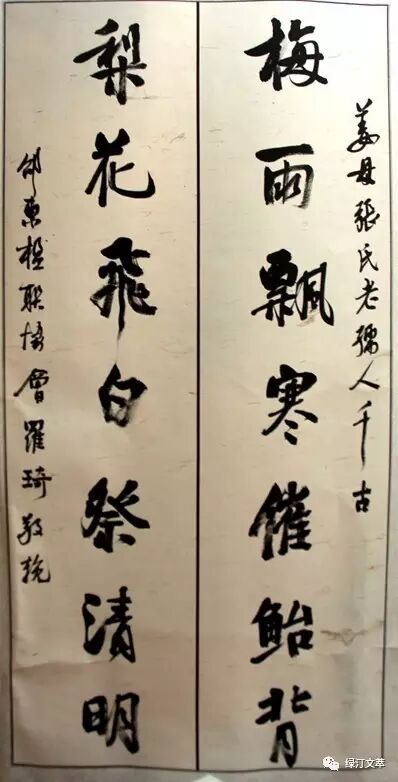 姜母張氏老孺人千古
梅雨飄寒催鮐背
梨花飛白祭清明
邵東楹联協會羅琦敬挽
绿汀文萃